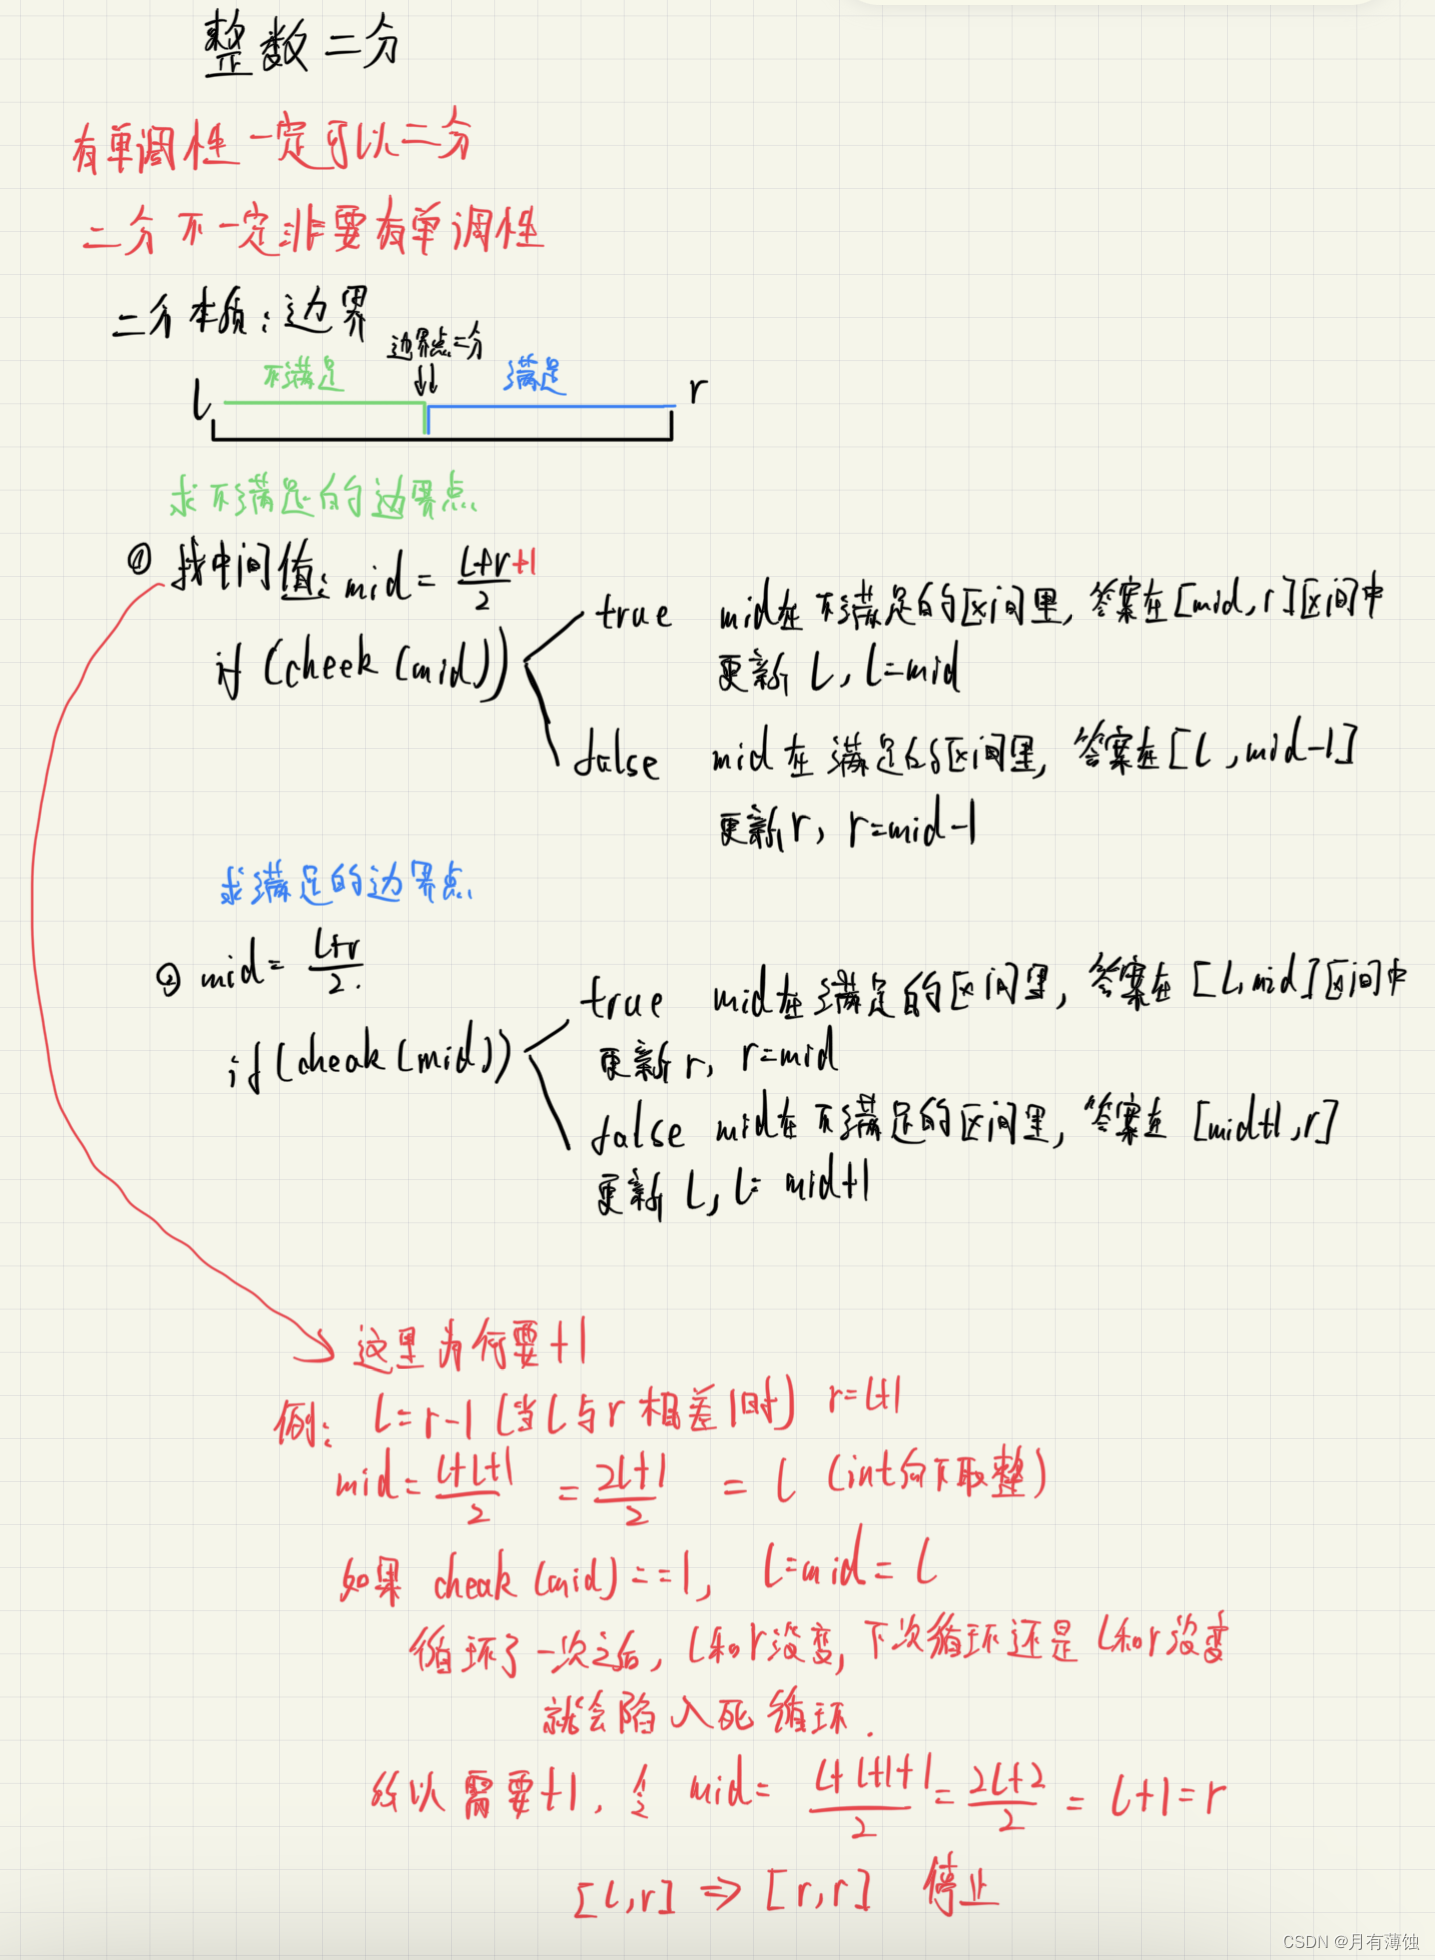 整数二分
有单调性一定可以二分
二分不一定非要有单调性
二分本质：边界
边界点二分
不满足
满足
l
r
求不满足的边界点
① 找中间值：mid = (l+r+1)/2
if (cheek (mid))
true mid在不满足的区间里, 答案在[mid, r]区间中
更新 l, l=mid
false mid在满足的区间里, 答案在[l, mid-1]
更新r, r=mid-1
求满足的边界点
② mid = (l+r)/2.
if (cheak (mid))
true mid在满足的区间里, 答案在 [l, mid]区间中
更新 r, r=mid
false mid在不满足的区间里, 答案在 [mid+1, r]
更新 l, l= mid+1
这里为何要+1
例: l=r-1 (当l与r相差1时) r=l+1
mid = (l+l+1)/2 = (2l+1)/2 = l (int向下取整)
如果 cheak (mid)==1, l=mid= l
循环了一次之后, l和r没变, 下次循环还是l和r没变
就会陷入死循环.
所以需要+1, 令 mid= (l+l+1+1)/2 = (2l+2)/2 = l+1=r
[l,r] => [r,r] 停止
CSDN @月有薄蚀